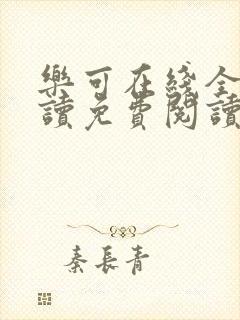 樂可在綫全
讀免費閱讀
秦長青